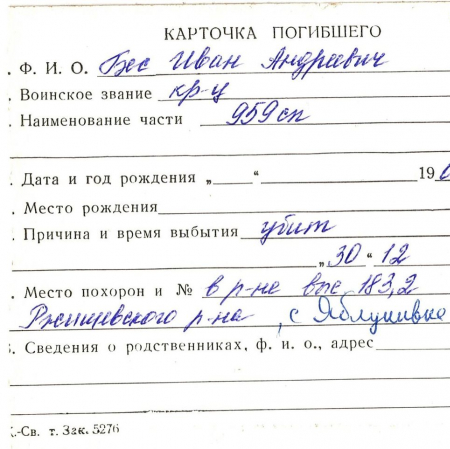 КАРТОЧКА ПОГИБШЕГО
. Ф. И. О. Бес Иван Андреевич
. Воинское звание кр-ц
. Наименование части 959 сп
. Дата и год рождения „ “ 19
. Место рождения
. Причина и время выбытия убит
„ 30 “ 12
. Место похорон и № в р-не выс 183,2
Ржищевского р-на, с Яблунивка
. Сведения о родственниках, ф. и. о., адрес
.-Св. т. Зак. 5276